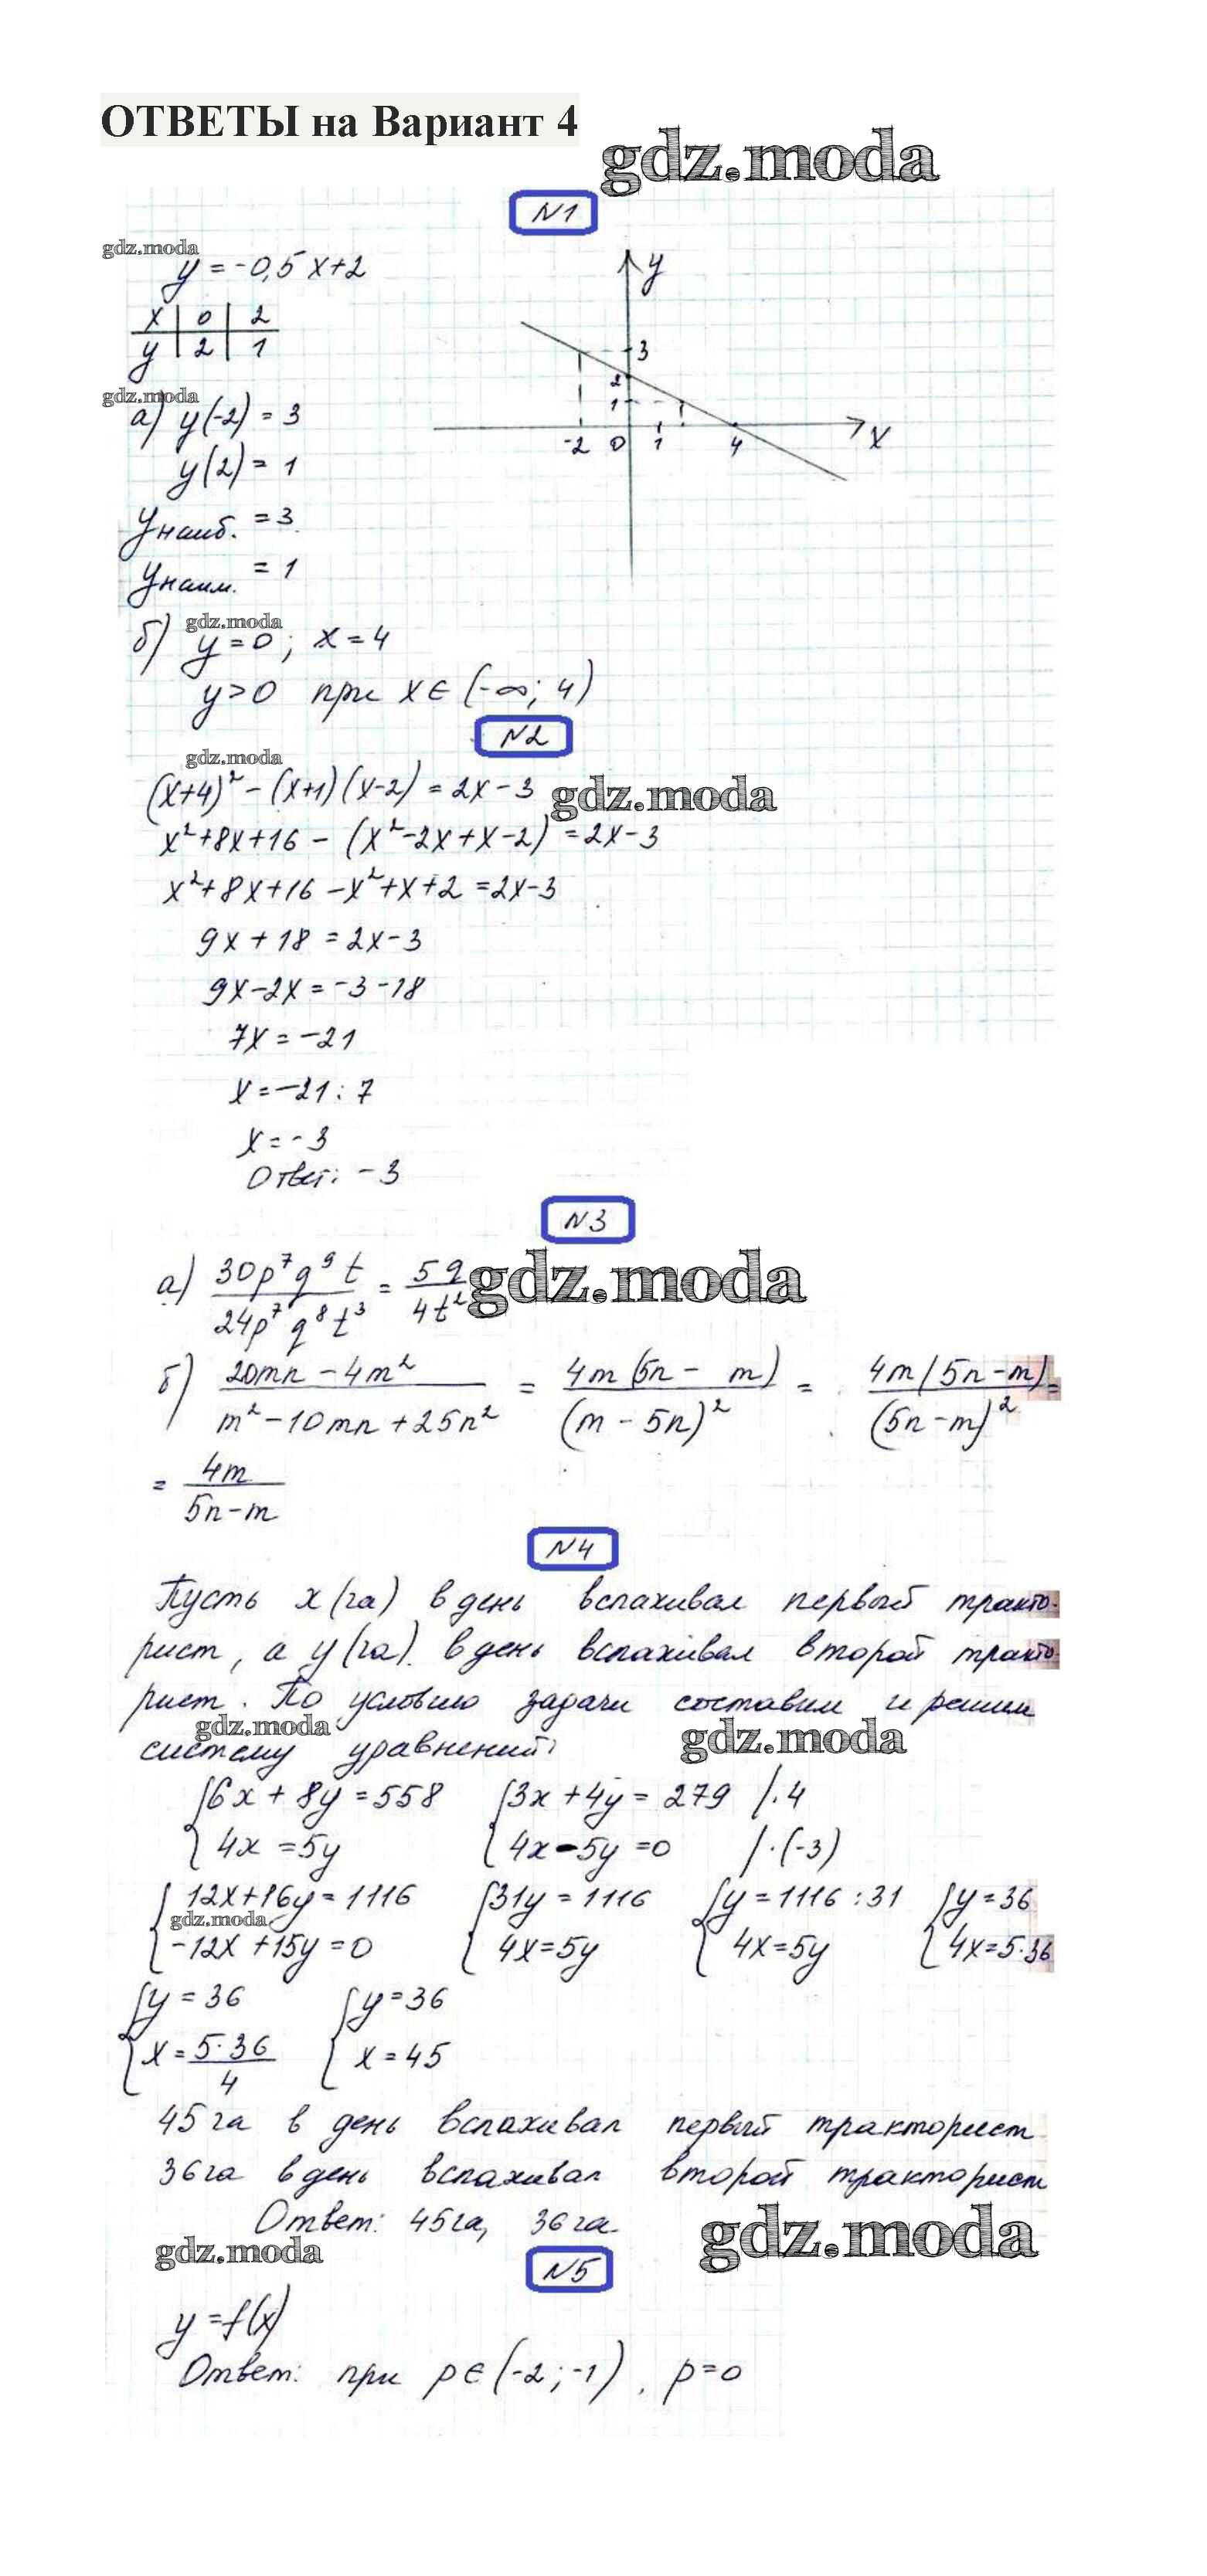 ОТВЕТЫ на Вариант 4
gdz.moda
N1
gdz.moda
y = -0,5x+2
x | 0 | 2
y | 2 | 1
y
3
2
1
-2 0 1 4 x
gdz.moda
а) y(-2) = 3
y(2) = 1
yнаиб. = 3
yнаим. = 1
gdz.moda
б) y=0; x=4
y>0 при x∈(-∞; 4)
N2
gdz.moda
(x+4)² - (x+1)(x-2) = 2x-3
gdz.moda
x²+8x+16 - (x²-2x+x-2) = 2x-3
x²+8x+16 -x²+x+2 = 2x-3
9x + 18 = 2x-3
9x-2x = -3-18
7x = -21
x = -21 : 7
x = -3
Ответ: -3
N3
а) 30p⁷q⁹t / 24p⁷q⁸t³ = 5q / 4t²
gdz.moda
б) 20mn - 4m² / m² - 10mn + 25n² = 4m(5n - m) / (m - 5n)² = 4m(5n-m) / (5n-m)² =
= 4m / 5n-m
N4
Пусть x(га) в день вспахивал первый тракто-
рист, а y(га) в день вспахивал второй тракто-
рист. По условию задачи составим и решим
gdz.moda
gdz.moda
систему уравнений:
{6x + 8y = 558 {3x + 4y = 279 /·4
4x = 5y 4x-5y = 0 /·(-3)
{12x+16y=1116 {31y = 1116 {y = 1116 : 31 {y = 36
gdz.moda
-12x + 15y = 0 4x = 5y 4x = 5y 4x = 5·36
{y = 36 {y = 36
x = 5·36 / 4 x = 45
45га в день вспахивал первый тракторист
36га в день вспахивал второй тракторист
Ответ: 45га, 36га
gdz.moda
gdz.moda
N5
y = f(x)
Ответ: при p∈(-2; -1), p=0